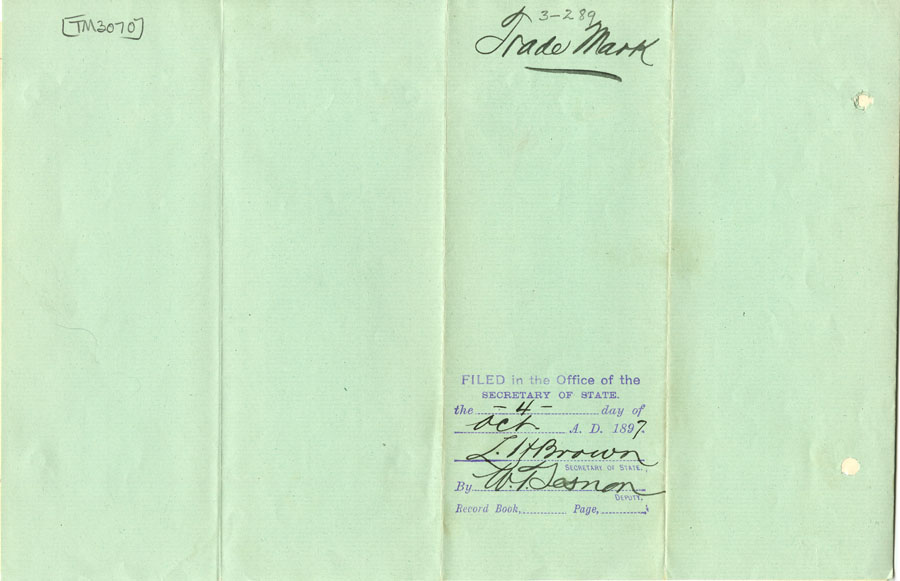 [TM3070]
3-289
Trade Mark
FILED in the Office of the
SECRETARY OF STATE.
the - 4 - day of
Oct A. D. 1897.
L. H. Brown
SECRETARY OF STATE.
By W. T.
DEPUTY.
Record Book, Page,